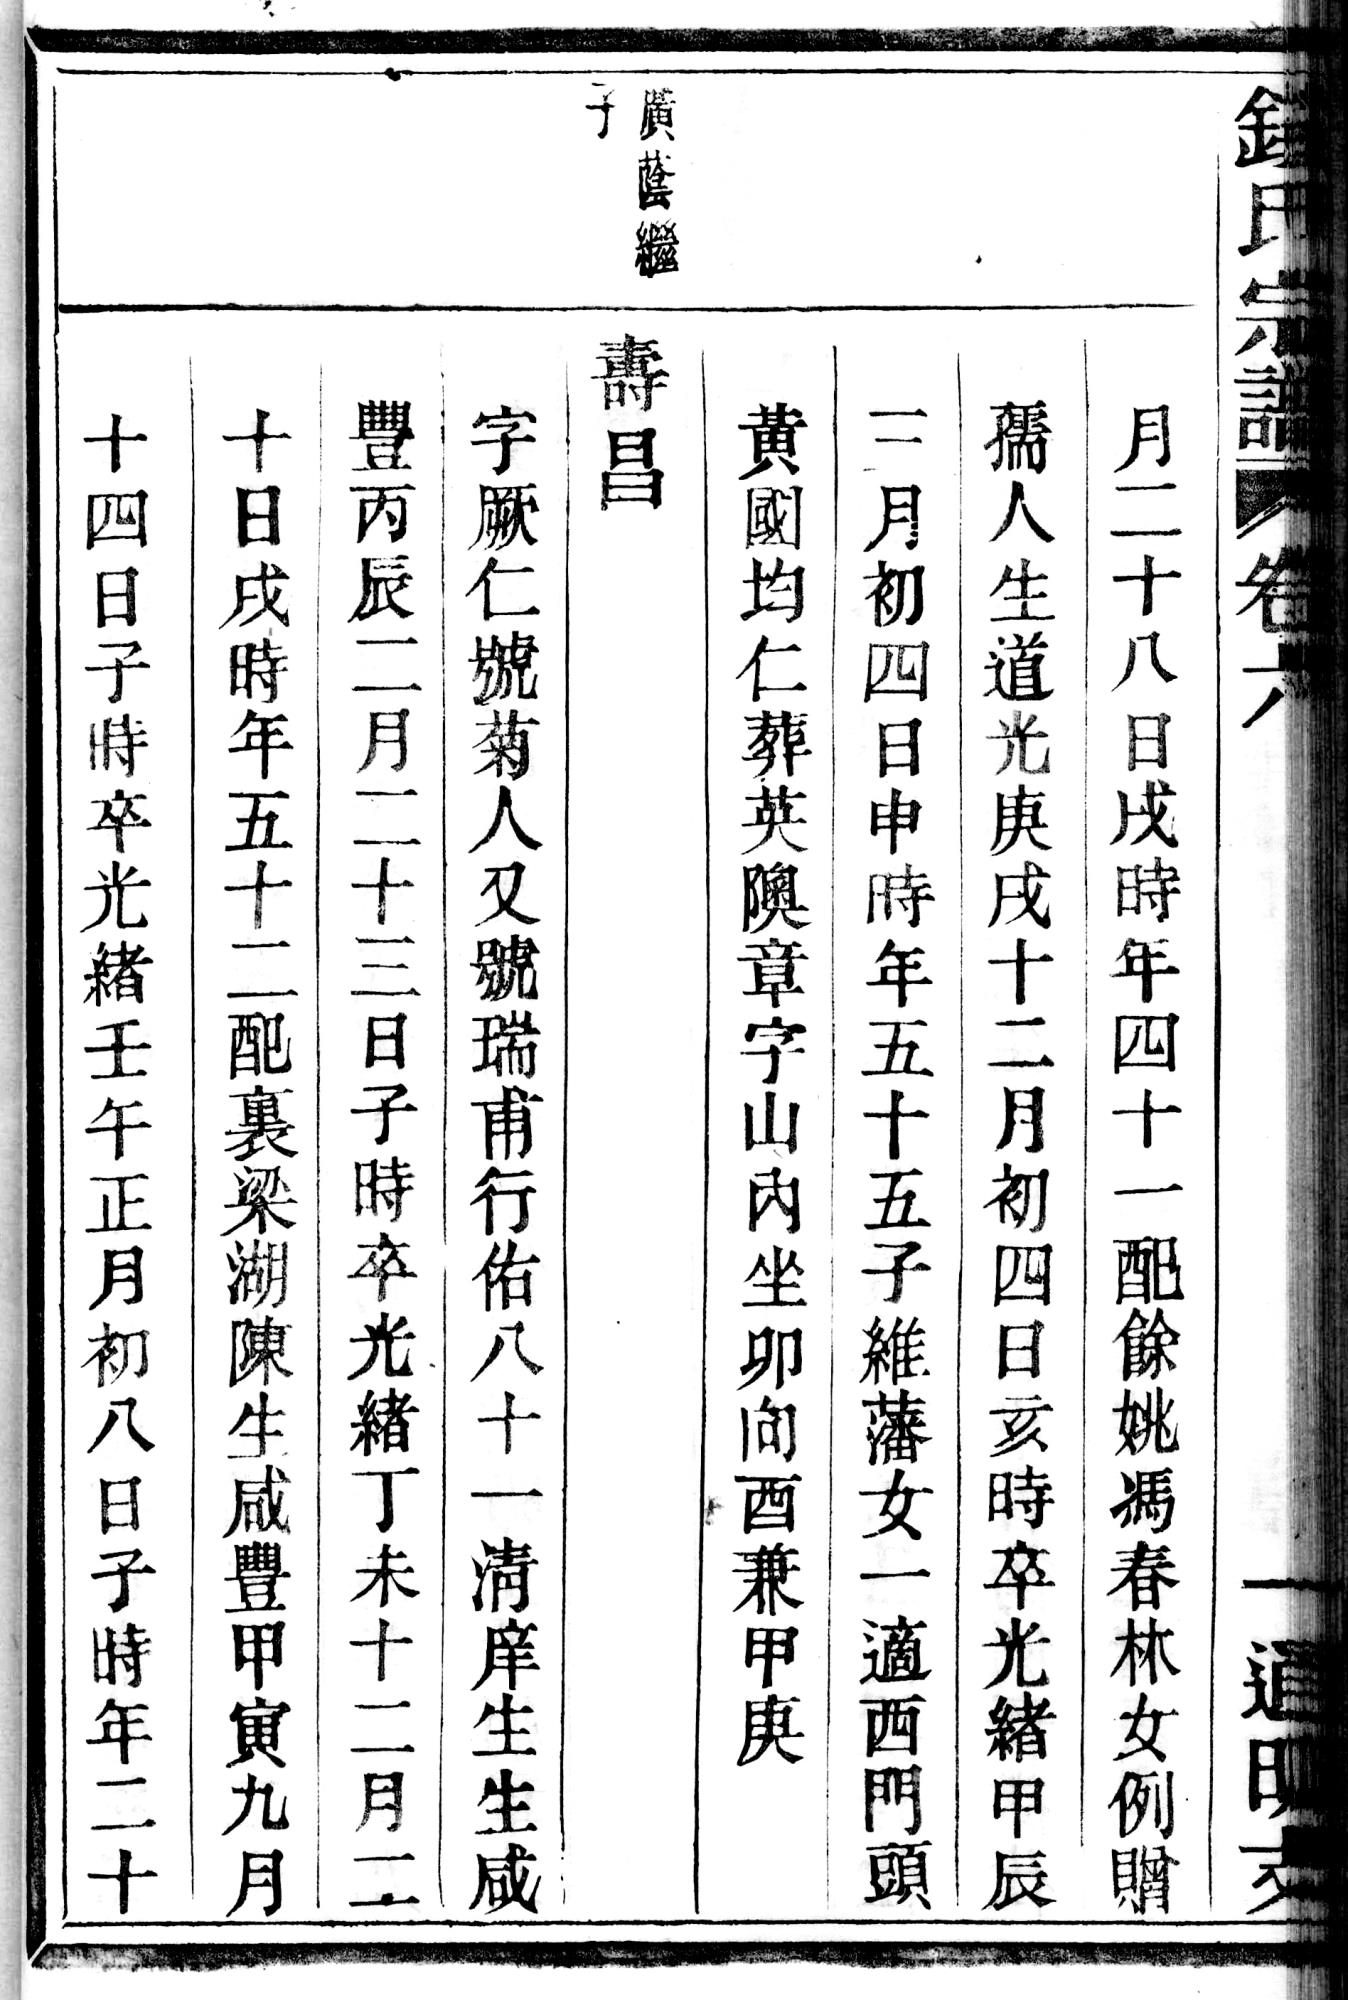 鍾氏宗譜 卷六 一 道明支
月二十八日戌時年四十一配餘姚馮春林女例贈
孺人生道光庚戌十二月初四日亥時卒光緒甲辰
三月初四日申時年五十五子維藩女一適西門頭
黃國均仁葬英隩章字山內坐卯向酉兼甲庚
廣蔭繼
子
壽昌
字厥仁號菊人又號瑞甫行佑八十一清庠生生咸
豐丙辰二月二十三日子時卒光緒丁未十二月二
十日戌時年五十二配裏梁湖陳生咸豐甲寅九月
十四日子時卒光緒壬午正月初八日子時年二十